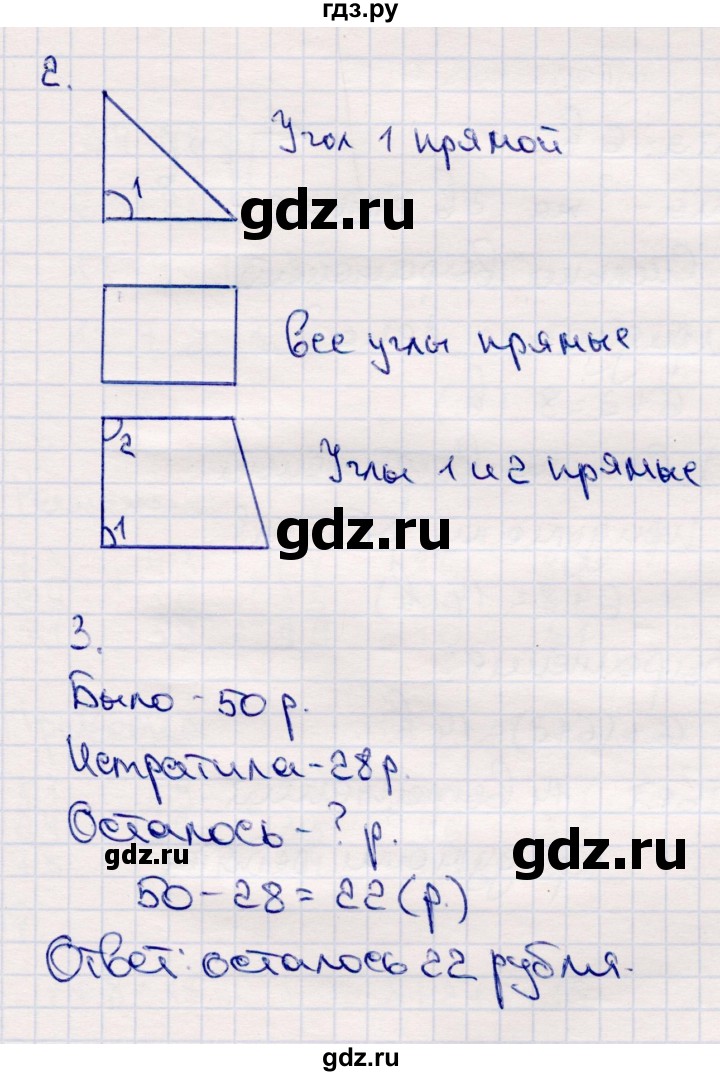 гдз.ру
2.
1
Угол 1 прямой
gdz.ru
все углы прямые
2
Углы 1 и 2 прямые
1
gdz.ru
3.
Было - 50 р.
Истратила - 28 р.
Осталось - ? р.
gdz.ru
gdz.ru
50 - 28 = 22 (р.)
Ответ: осталось 22 рубля.
gdz.ru